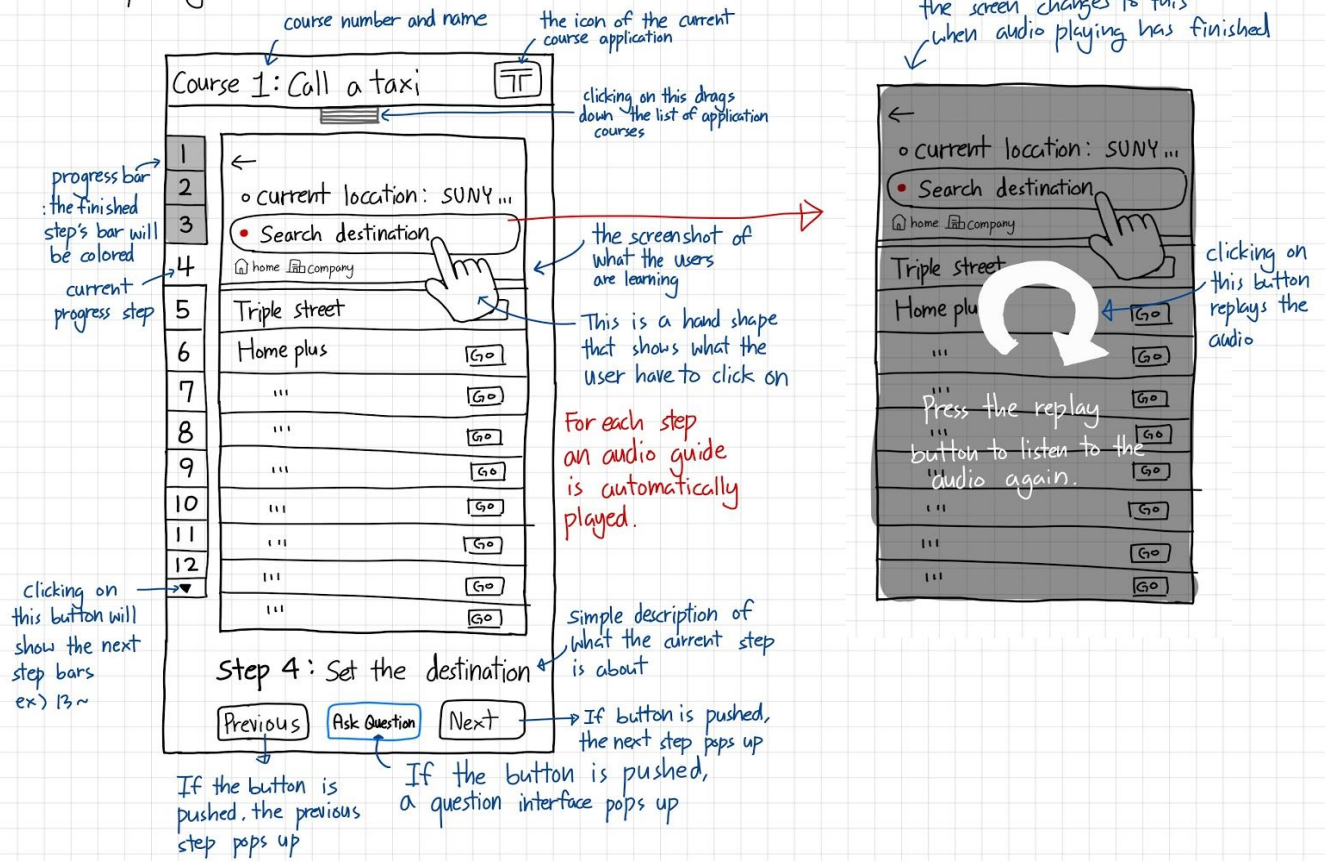 course number and name
the icon of the current
course application
Course 1: Call a taxi
clicking on this drags
down the list of application
courses
progress bar
: the finished
step's bar will
be colored
current
progress step
1
2
3
4
5
6
7
8
9
10
11
12
▼
clicking on
this button will
show the next
step bars
ex) 13~
←
current location: SUNY...
Search destination
home company
Triple street
Home plus Go
... Go
... Go
... Go
... Go
... Go
... Go
... Go
the screenshot of
what the users
are learning
This is a hand shape
that shows what the
user have to click on
For each step
an audio guide
is automatically
played.
Step 4: Set the destination
simple description of
what the current step
is about
Previous
Ask Question
Next
If button is pushed,
the next step pops up
If the button is
pushed, the previous
step pops up
If the button is pushed,
a question interface pops up
the screen changes to this
when audio playing has finished
←
current location: SUNY...
Search destination
home company
Triple street
Home plu Go
... Go
... Go
... Go
... Go
... Go
... Go
... Go
Press the replay
button to listen to the
audio again.
clicking on
this button
replays the
audio